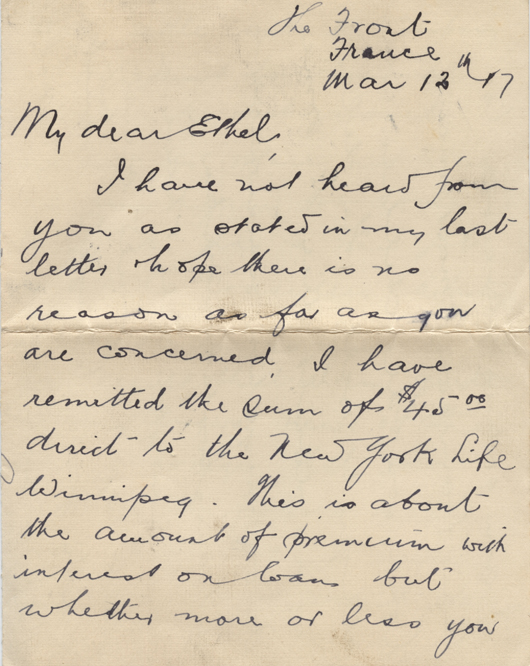 The Front
France
Mar 13th 17
My dear Ethel,
I have not heard from
you as stated in my last
letter & hope there is no
reason as far as you
are concerned. I have
remitted the sum of $45.00
direct to the New York Life
Winnipeg. This is about
the amount of premium with
interest on loans but
whether more or less you